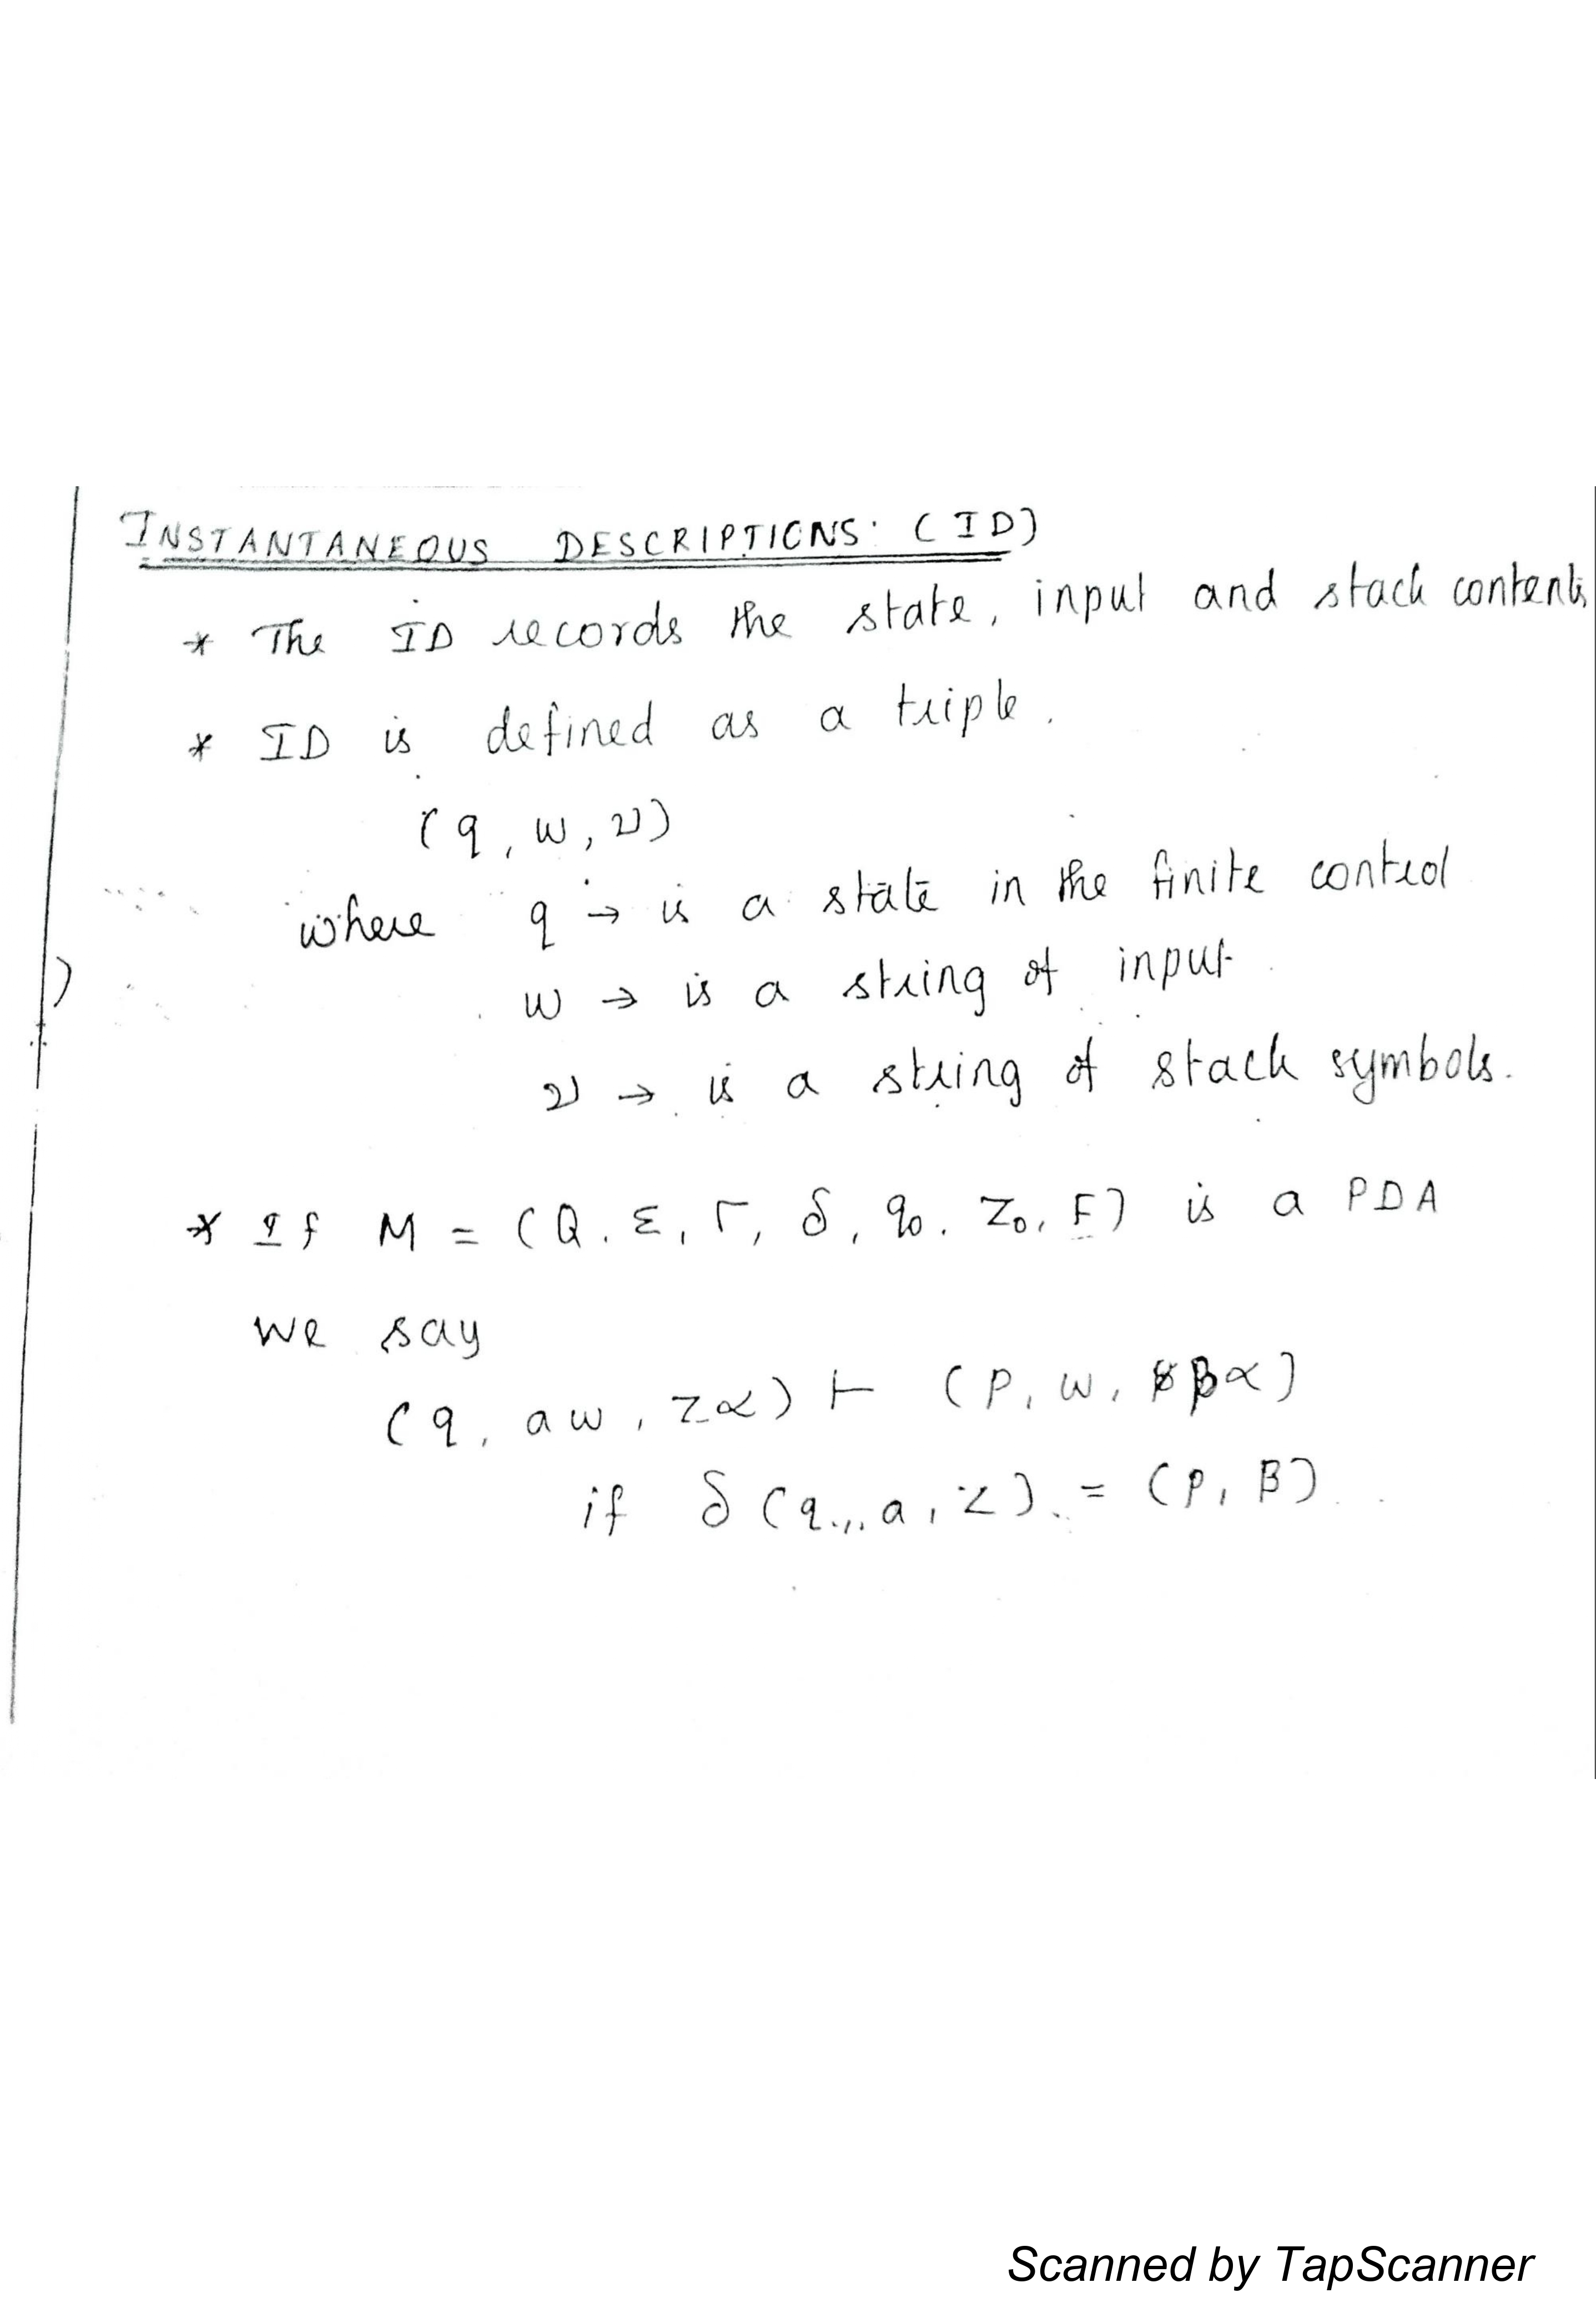 INSTANTANEOUS DESCRIPTIONS: (ID)
* The ID records the state, input and stack contents
* ID is defined as a triple.
(q, w, ν)
where q → is a state in the finite control
w → is a string of input
ν → is a string of stack symbols.
* If M = (Q, Σ, Γ, δ, q₀, Z₀, F) is a PDA
we say
(q, aw, Zα) ⊢ (P, w, βα)
if δ(q, a, Z) = (P, β)
Scanned by TapScanner